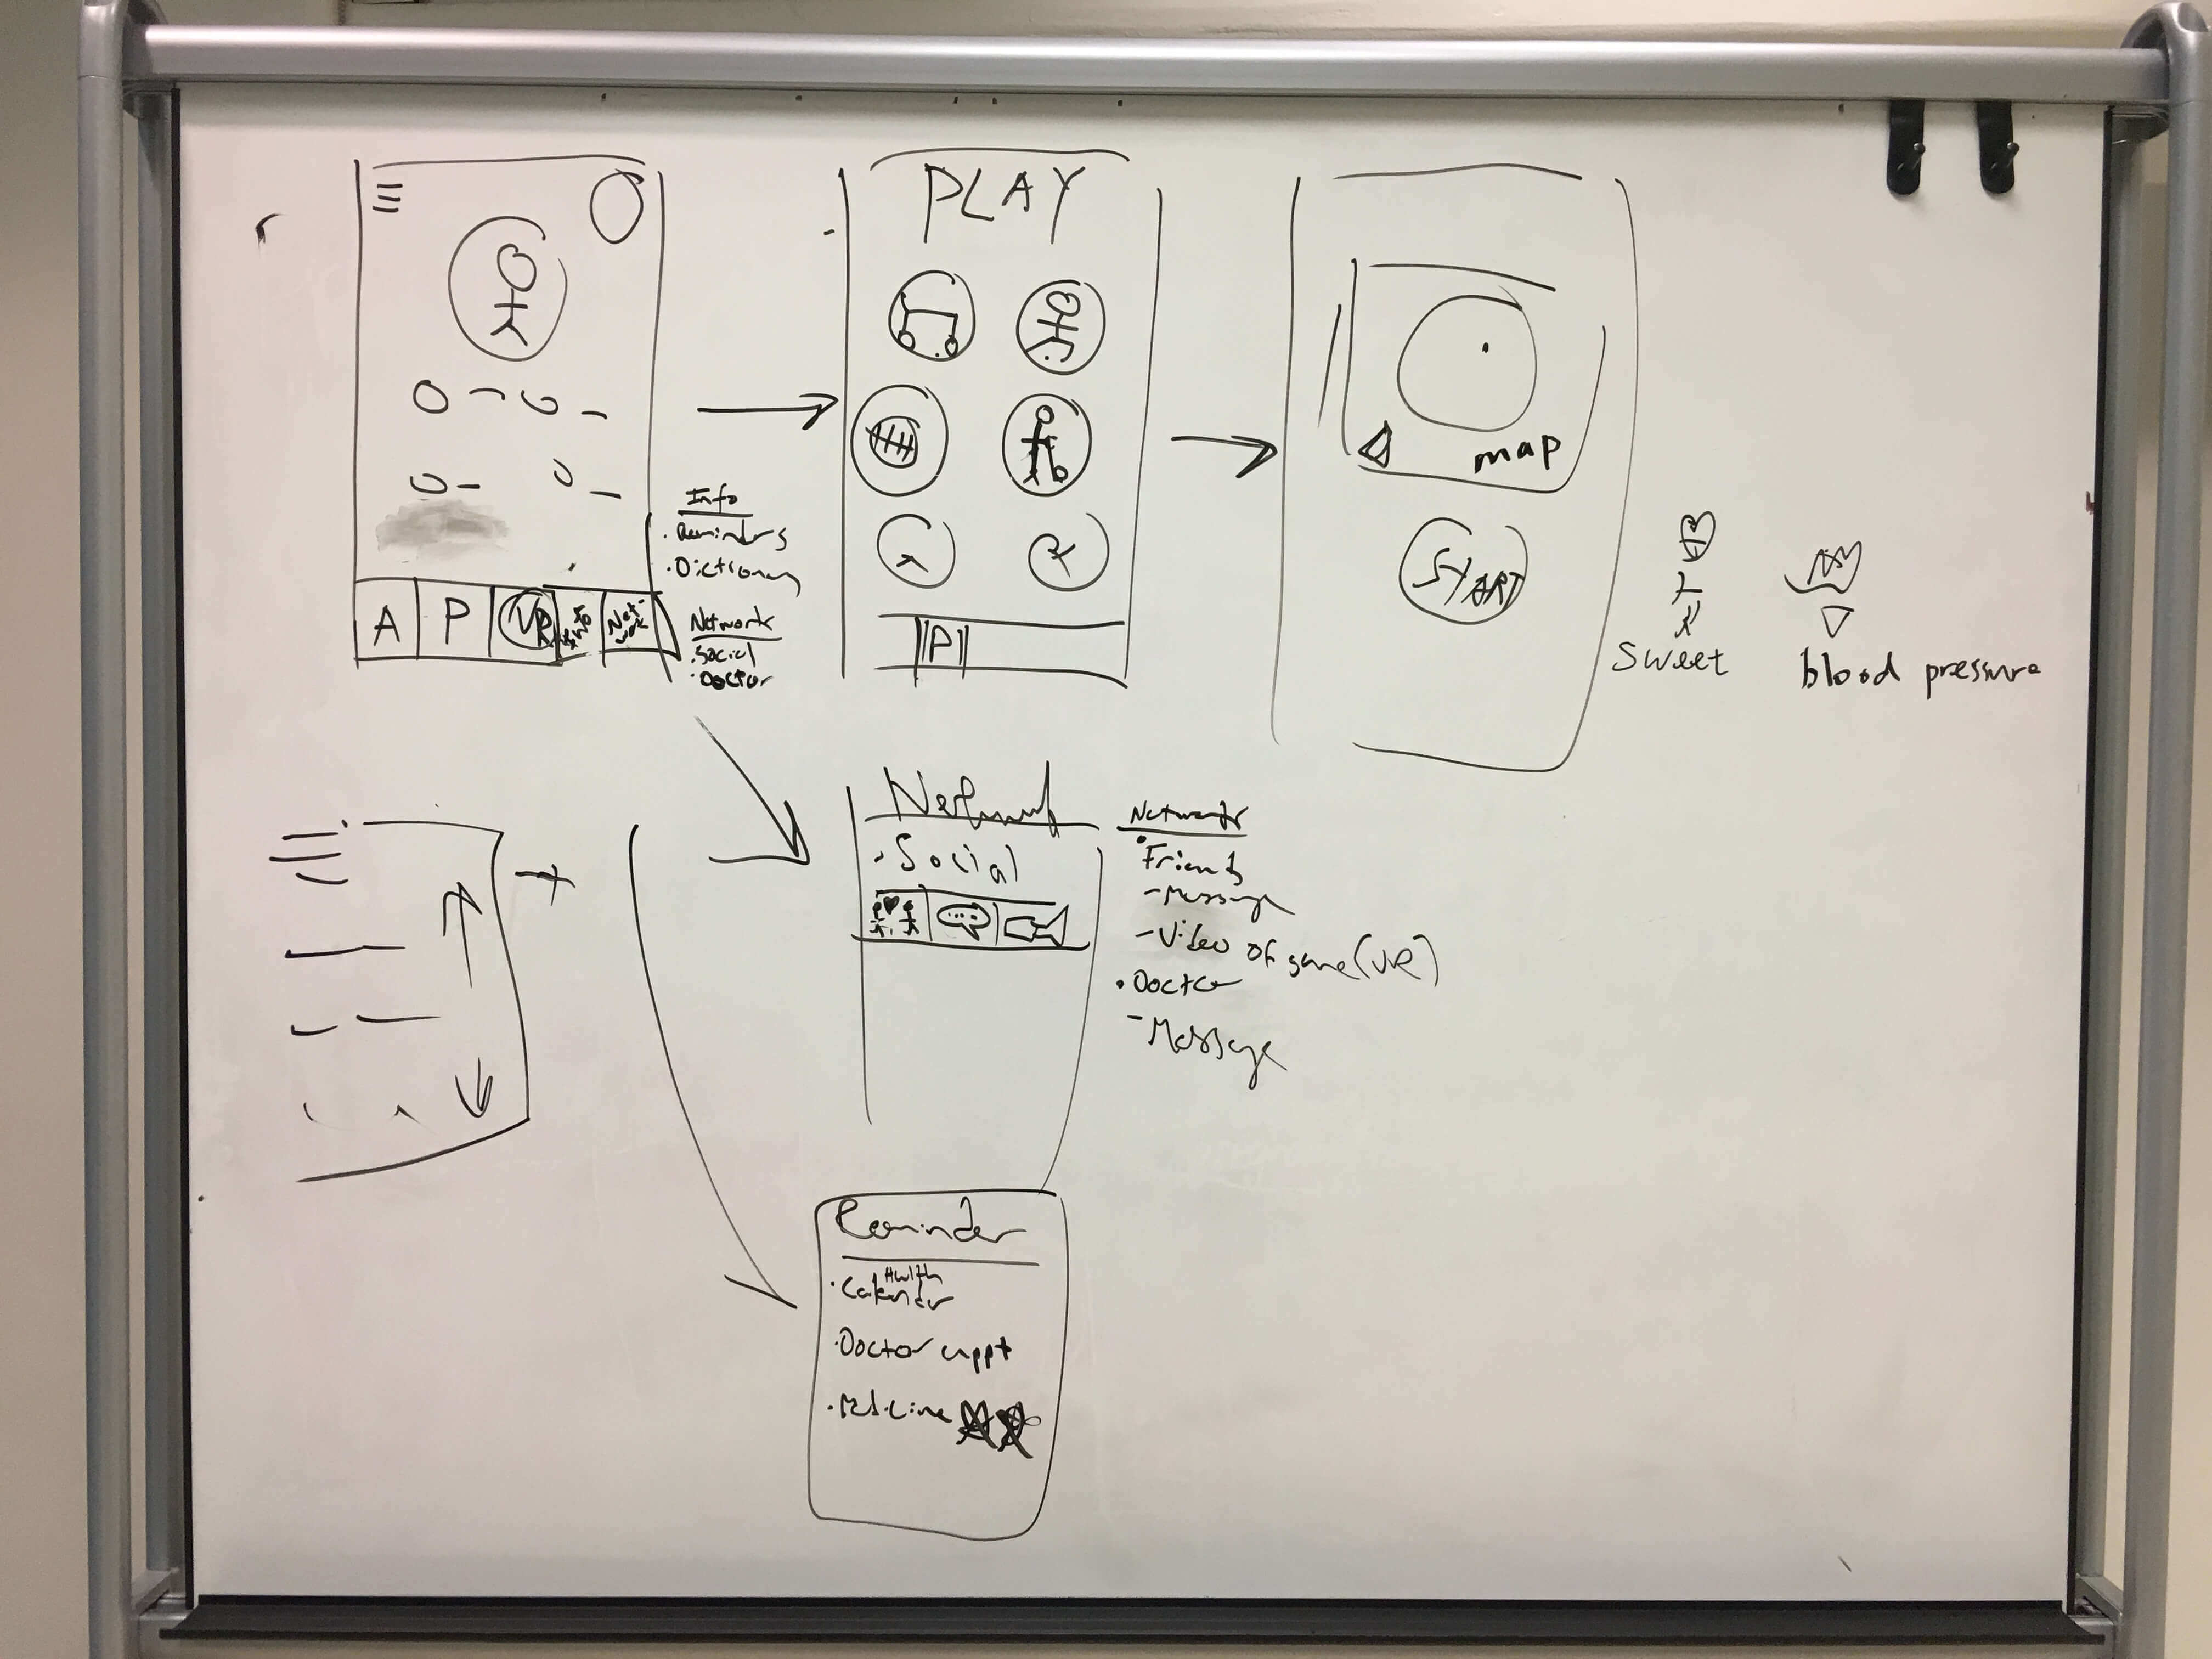 A P VR Info Net-
work
Info
. Reminders
. Dictionary
Network
. Social
. Doctor
PLAY
P
map
START
Sweet
blood pressure
Network
- Social
Network
• Friends
- Message
- Video of game (VR)
• Doctor
- Message
Reminder
Health
. Calendar
. Doctor appt
. Medicine